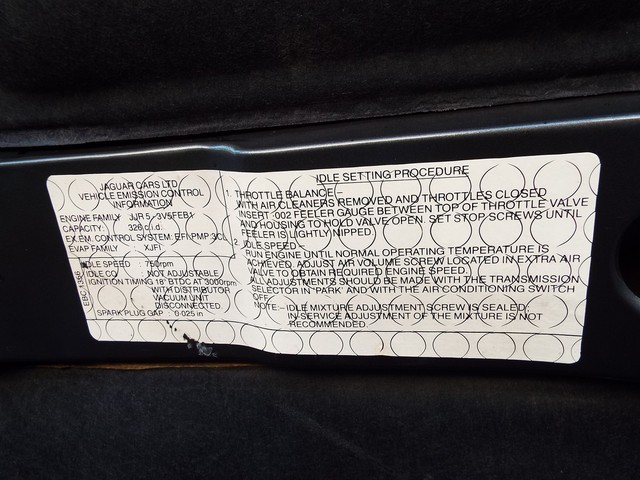 JAGUAR CARS LTD
VEHICLE EMISSION CONTROL
INFORMATION
ENGINE FAMILY JJR 5·3V5FEB1
CAPACITY: 326 c.i.d.:
EX.EM.CONTROL SYSTEM: EFI PMP 3CL
EVAP FAMILY – XJF1
IDLE SPEED : 750rpm
IDLE CO : NOT ADJUSTABLE
IGNITION TIMING 18° BTDC AT 3000rpm
WITH DISTRIBUTOR
VACUUM UNIT
DISCONNECTED.
SPARK PLUG GAP : 0·025 in
IDLE SETTING PROCEDURE
1. THROTTLE BALANCE –
WITH AIR CLEANERS REMOVED AND THROTTLES CLOSED
INSERT ·002 FEELER GAUGE BETWEEN TOP OF THROTTLE VALVE
AND HOUSING TO HOLD VALVE OPEN. SET STOP SCREWS UNTIL
FEELER IS LIGHTLY NIPPED.
2. IDLE SPEED –
RUN ENGINE UNTIL NORMAL OPERATING TEMPERATURE IS
ACHIEVED. ADJUST AIR VOLUME SCREW LOCATED IN EXTRA AIR
VALVE TO OBTAIN REQUIRED ENGINE SPEED.
ALL ADJUSTMENTS SHOULD BE MADE WITH THE TRANSMISSION
SELECTOR IN "PARK" AND WITH THE AIR CONDITIONING SWITCH
OFF.
NOTE:– IDLE MIXTURE ADJUSTMENT SCREW IS SEALED;
IN-SERVICE ADJUSTMENT OF THE MIXTURE IS NOT
RECOMMENDED.